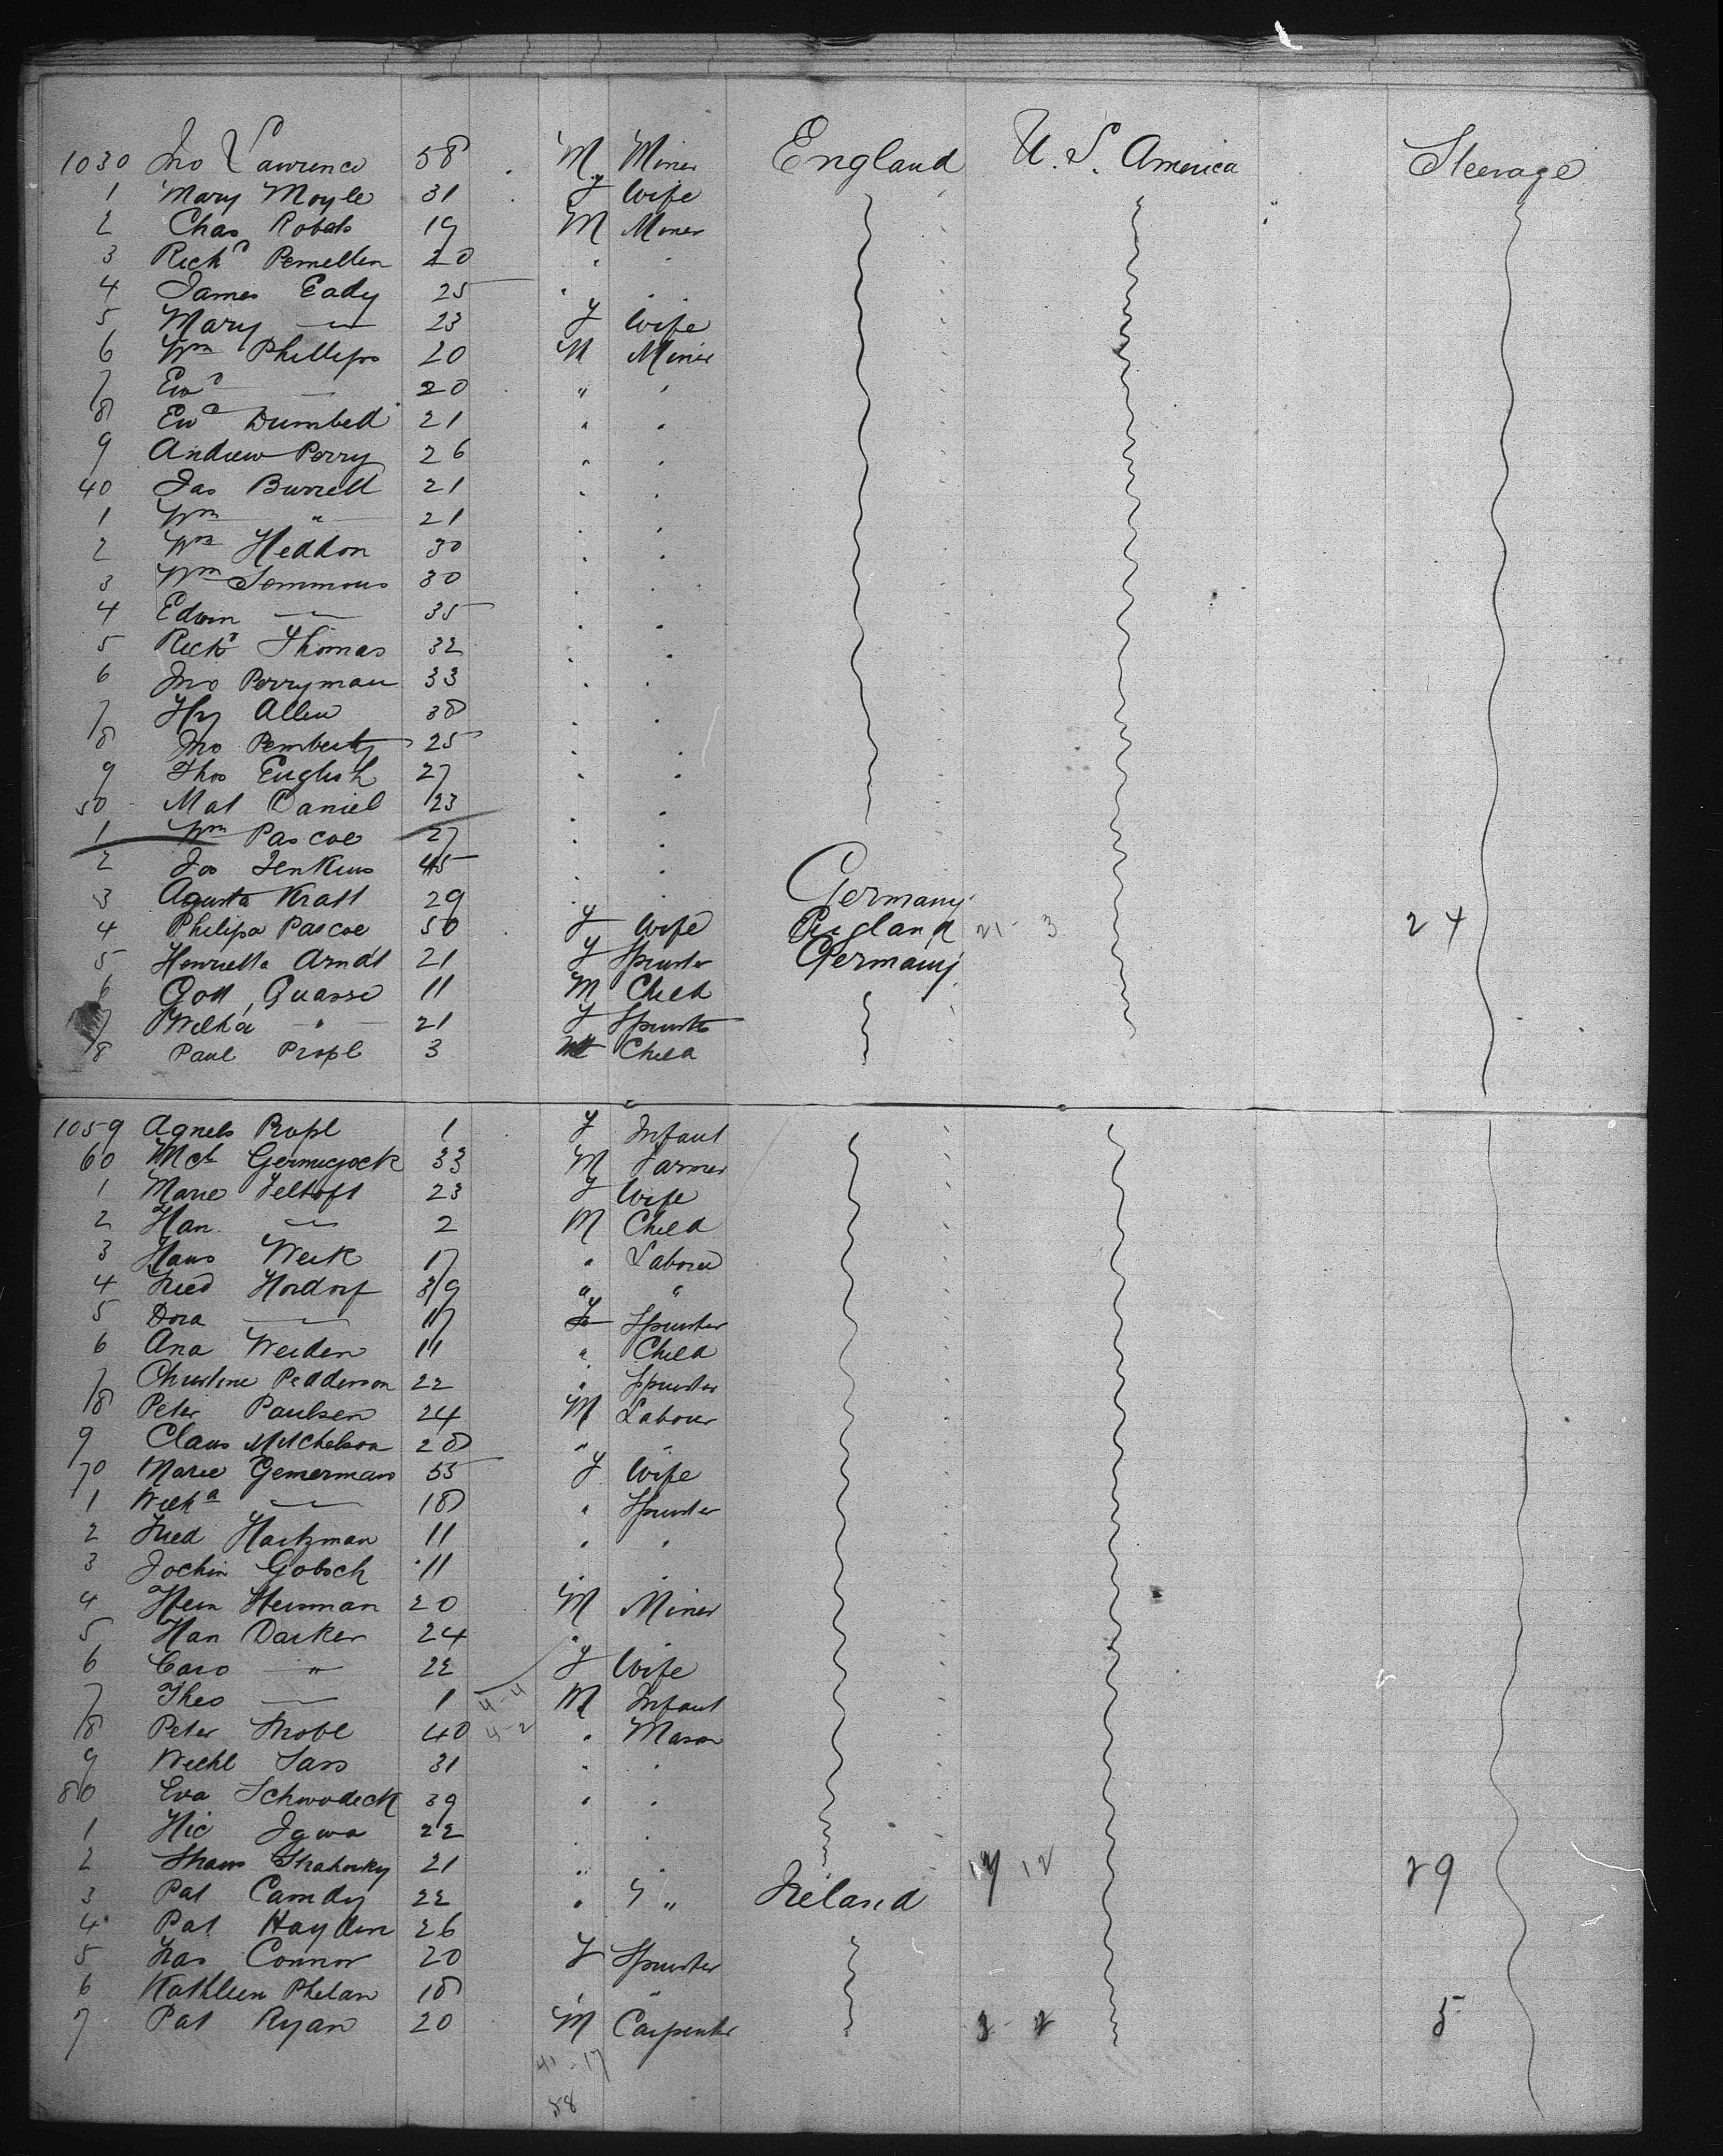 1030 Jno Lawrence 58 M Miner England U. S. America Steerage
1 Mary Moyle 31 F Wife
2 Chas Robets 19 M Miner
3 Rich^d 20 " "
4 James Eady 25 " "
5 Mary — " — 23 F Wife
6 Wm Phillips 20 M Miner
7 Ew^d — 20 " "
8 Ew^d Dumbell 21 " "
9 Andrew Perry 26 " "
40 Jas Burrell 21 " "
1 Wm — " — 21 " "
2 Wm Heddon 30 " "
3 Wm Semmons 30 " "
4 Edwin — " — 35 " "
5 Rich^d Thomas 32 " "
6 Jno Perryman 33 " "
7 Hy Allen 38 " "
8 Jno 25 " "
9 Thos English 27 " "
50 Mat Daniel 23 " "
1 Wm Pascoe 27 " "
2 Jos Jenkins 45 " "
3 Agusta Kratt 29 " Germany
4 Philipa Pascoe 50 F Wife England 21 - 3 24
5 Henrietta Arndt 21 F Spinster Germany
6 Gott Quasse 11 M Child
7 Wilh^a — " — 21 F Spinster
8 Paul Propl 3 M Child
1059 Agnels Propl 1 F Infant
60 Mch 33 M Farmer
1 Marie Feltoft 23 F Wife
2 Han — " — 2 M Child
3 Hans Weik 17 " Labour
4 Fred Hordorf 19 " "
5 Dora — " — 17 F Spinster
6 Ana Weiden 11 " Child
7 Christine Pedderson 22 " Spinster
8 Peter Paulsen 24 M Labour
9 Claus Mitchelson 28 " "
70 Marie Gemerman 55 F Wife
1 Wilh^a — " — 18 " Spinster
2 Fred Hartzman 11 " "
3 Jochin Gobsch 11 " "
4 Hein Heinman 20 M Miner
5 Han Darker 24 "
6 Caro — " — 22 F Wife
7 Theo — " — 1 4-4 M Infant
8 Peter 40 4-2 " Mason
9 Wilhl Sass 31 " "
80 Eva Schwodeck 39 " "
1 Nic Jgwa 22 " "
2 21 " " 17 12 29
3 Pat 22 " " Ireland
4 Pat Hayden 26
5 Connor 20 F Spinster
6 Kathleen Phelan 18 "
7 Pat Ryan 20 M Carpenter 3 - 2 5
41 - 17
58